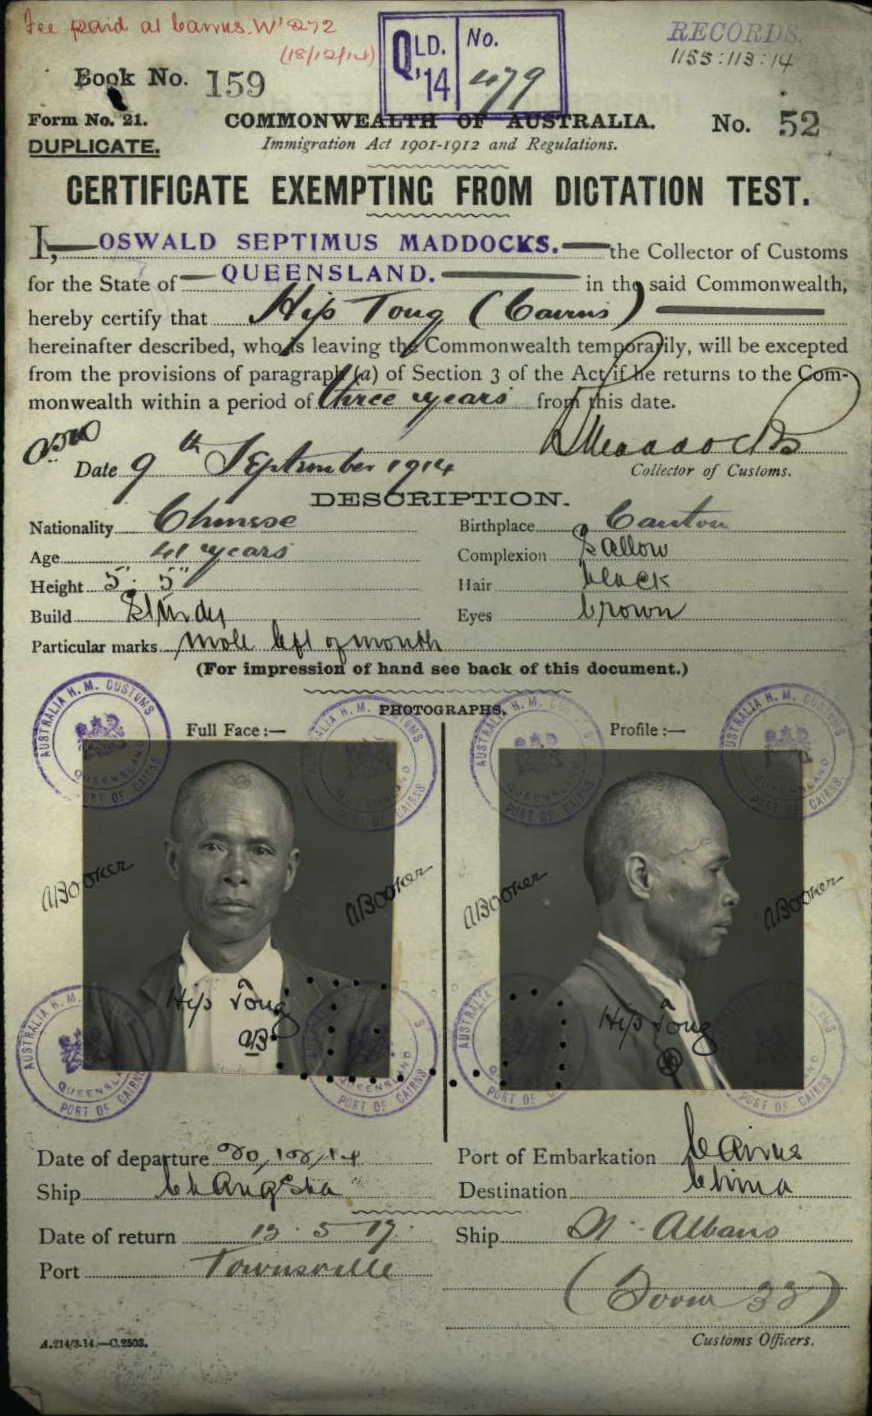 Fee paid at Cairns. Nº 272
(18/12/14)
QLD. '14 No. 479
RECORDS.
1155:113:14
Book No. 159
Form No. 21.
COMMONWEALTH OF AUSTRALIA.
No. 52
DUPLICATE.
Immigration Act 1901-1912 and Regulations.
CERTIFICATE EXEMPTING FROM DICTATION TEST.
I, OSWALD SEPTIMUS MADDOCKS. the Collector of Customs
for the State of QUEENSLAND. in the said Commonwealth,
hereby certify that Hip Tong (Cairns)
hereinafter described, who is leaving the Commonwealth temporarily, will be excepted
from the provisions of paragraph (a) of Section 3 of the Act if he returns to the Com-
monwealth within a period of three years from this date.
Date 9th September 1914
Collector of Customs.
DESCRIPTION.
Nationality Chinese Birthplace Canton
Age 41 years Complexion Sallow
Height 5' 5" Hair black
Build Sturdy Eyes brown
Particular marks mole left of mouth
(For impression of hand see back of this document.)
PHOTOGRAPHS.
Full Face:— Profile:—
AUSTRALIA H. M. CUSTOMS QUEENSLAND PORT OF CAIRNS
ABooker ABooker ABooker ABooker
Hip Tong AB Hip Tong
Date of departure 20/12/14 Port of Embarkation Cairns
Ship Changsha Destination China
Date of return 13.5.17. Ship St. Albans
Port Townsville
Customs Officers.
A.214/3.14.—C.2503.